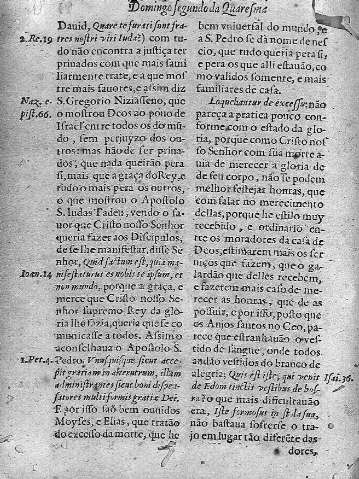 Domingo segundo da Quaresma
Dauid, Quare te furati sunt fra-
2. Re. 19
tres nostri viri Iuda?) com tu-
do não encontra a justiça ter
priuados com que mais fami
liarmente trate, e a que mo
stre mais fauores, e assim diz
Naz. e-
pist. 66.
S. Gregorio Nizianseno, que
o mostrou Deos ao pouo de
Israel entre todos os do mũ-
do, sem perjuyzo dos ou-
tros: mas hão de ser priua-
dos, que nada queirão pera
si, mais que a graça do Rey, e
tudo o mais pera os outros,
o que mostrou o Apostolo
S. Iudas Tadeu, vendo o fa-
uor que Christo nosso Senhor
queria fazer aos Discipulos,
de se lhe manifestar, disse Se-
nhor, Quid factum est, quia ma-
Ioan. 14
nifestaturus es nobis te ipsum, et
non mundo, porque a graça, e
merce que Christo nosso Se-
nhor supremo Rey da glo-
ria lhe fazia, queria que se co
municasse a todos. Assim o
aconselhaua o Apostolo S.
1. Pet. 4.
Pedro, Vnusquisque sicut acce-
pit gratiam in alterutrum, illam
administrantes sicut boni dispen-
satores multiformis gratiæ Dei.
E por isso saõ bem ouuidos
Moyses, e Elias, que tratão
do excesso da morte, que he
bem vniuersal do mundo, e
a S. Pedro se dà nome de nes-
cio, que tudo queria pera si,
e pera os que alli estauão, co
mo validos somente, e mais
familiares de casa.
Loquebantur de excessu: não
pareça a pratica pouco con-
forme com o estado da glo-
ria, porque como Christo nos
so Senhor com sua morte a-
uia de merecer a gloria de
de seu corpo, não se podem
melhor festejar honras, que
com falar no merecimento
dellas, porque he estilo muy
recebido, e ordinario en-
tre os moradores da casa de
Deos, estimarem mais os ser
uiços que fazem, que o ga-
lardão que delles recebem,
e fazerem mais caso de me-
recer as honras, que de as
possuir, e por isso, posto que
os Anjos santos no Ceo, pa-
rece que estranhauão o ves-
tido de sangue, onde todos
andão vestidos do branco de
alegria; Quis est iste, qui venit
Isai. 36.
de Edom tinctis vestibus de bos-
ra? o que mais dificultauão
era, Iste formosus in stola sua,
não bastaua sofrerse o tra-
jo em lugar tão diferẽte das
dores,